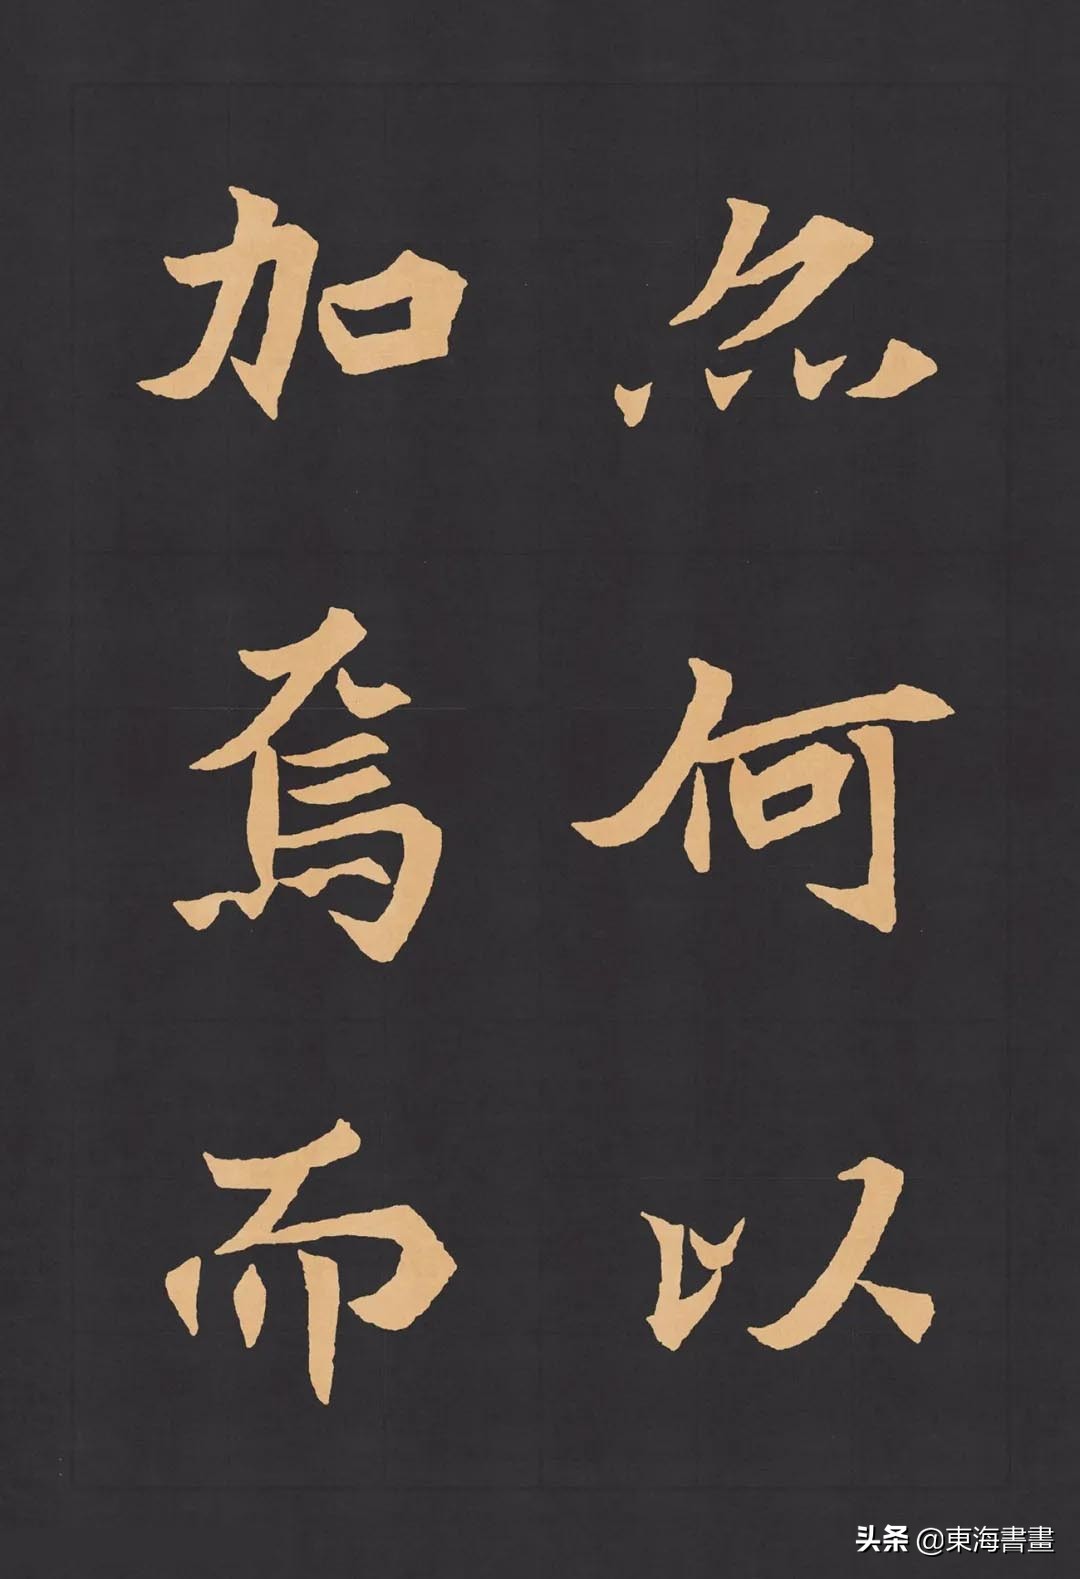 何以
加焉而
头条 @東海書畫